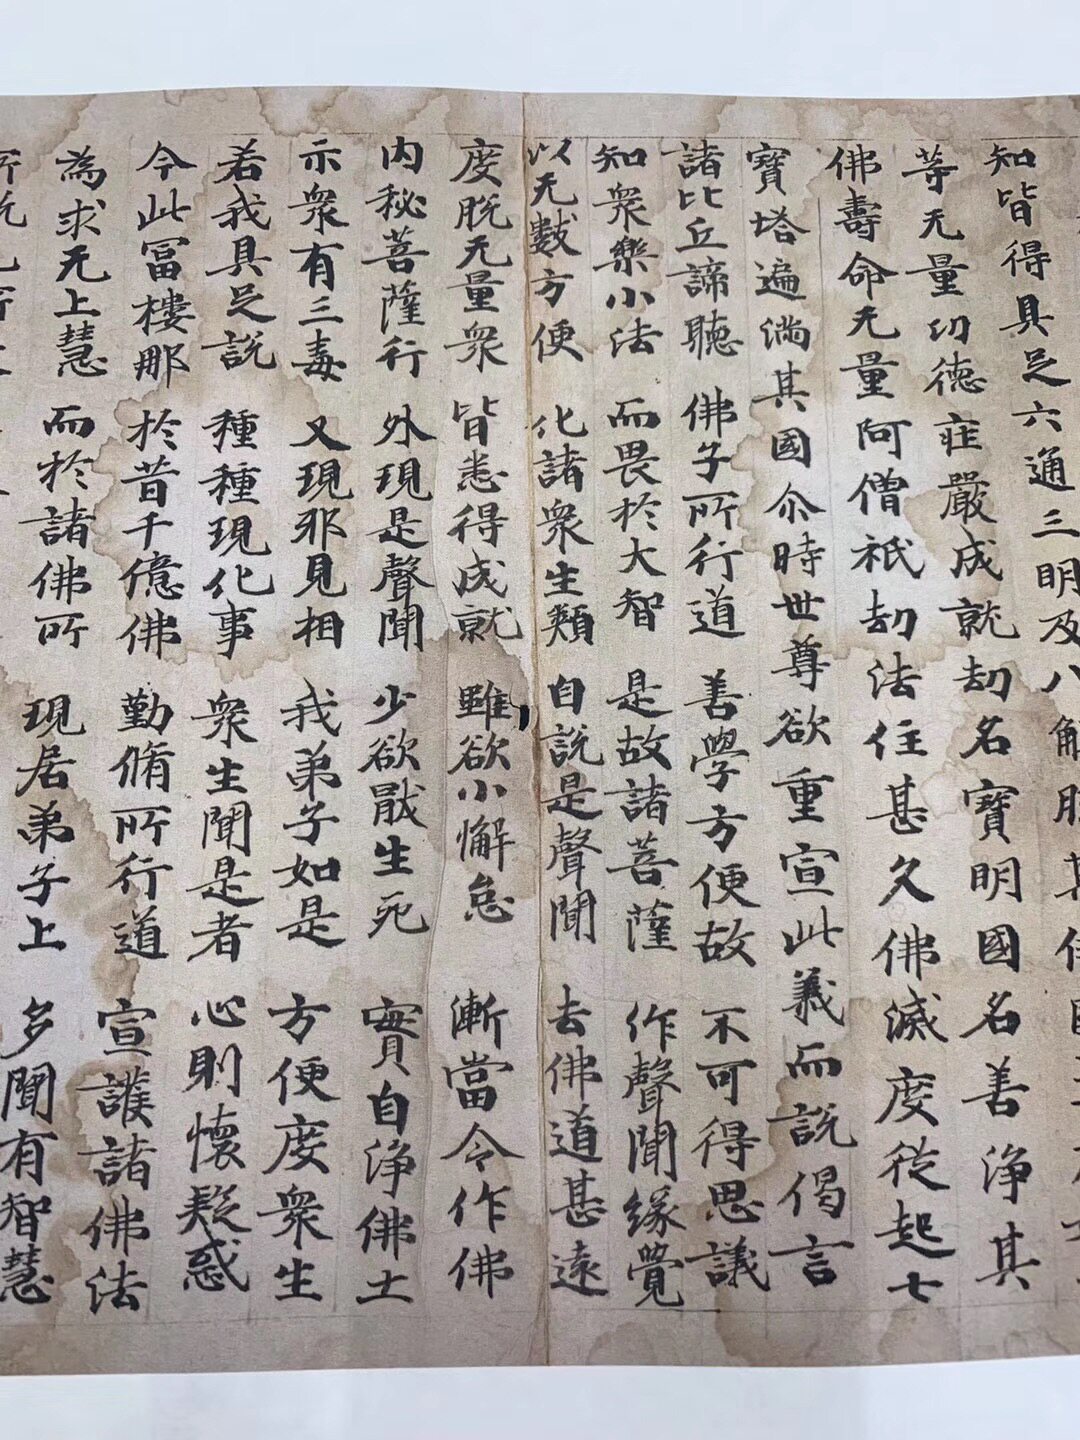 知皆得具足六通三明及八解脱其佛国
等无量㓛德莊嚴成就劫名寶明國名善淨其
佛壽命无量阿僧祇劫法住甚久佛滅度後起七
寶塔遍滿其國尒時世尊欲重宣此義而說偈言
諸比丘諦聽 佛子所行道 善學方便故 不可得思議
知衆樂小法 而畏於大智 是故諸菩薩 作聲聞緣覺
以无數方便 化諸衆生類 自說是聲聞 去佛道甚遠
度脫无量衆 皆悉得成就 雖欲小懈怠 漸當令作佛
内秘菩薩行 外現是聲聞 少欲猒生死 實自淨佛土
示衆有三毒 又現邪見相 我弟子如是 方便度衆生
若我具足說 種種現化事 衆生聞是者 心則懷疑惑
今此冨樓那 於昔千億佛 勤脩所行道 宣護諸佛法
為求无上慧 而於諸佛所 現居弟子上 多聞有智慧
所說无所